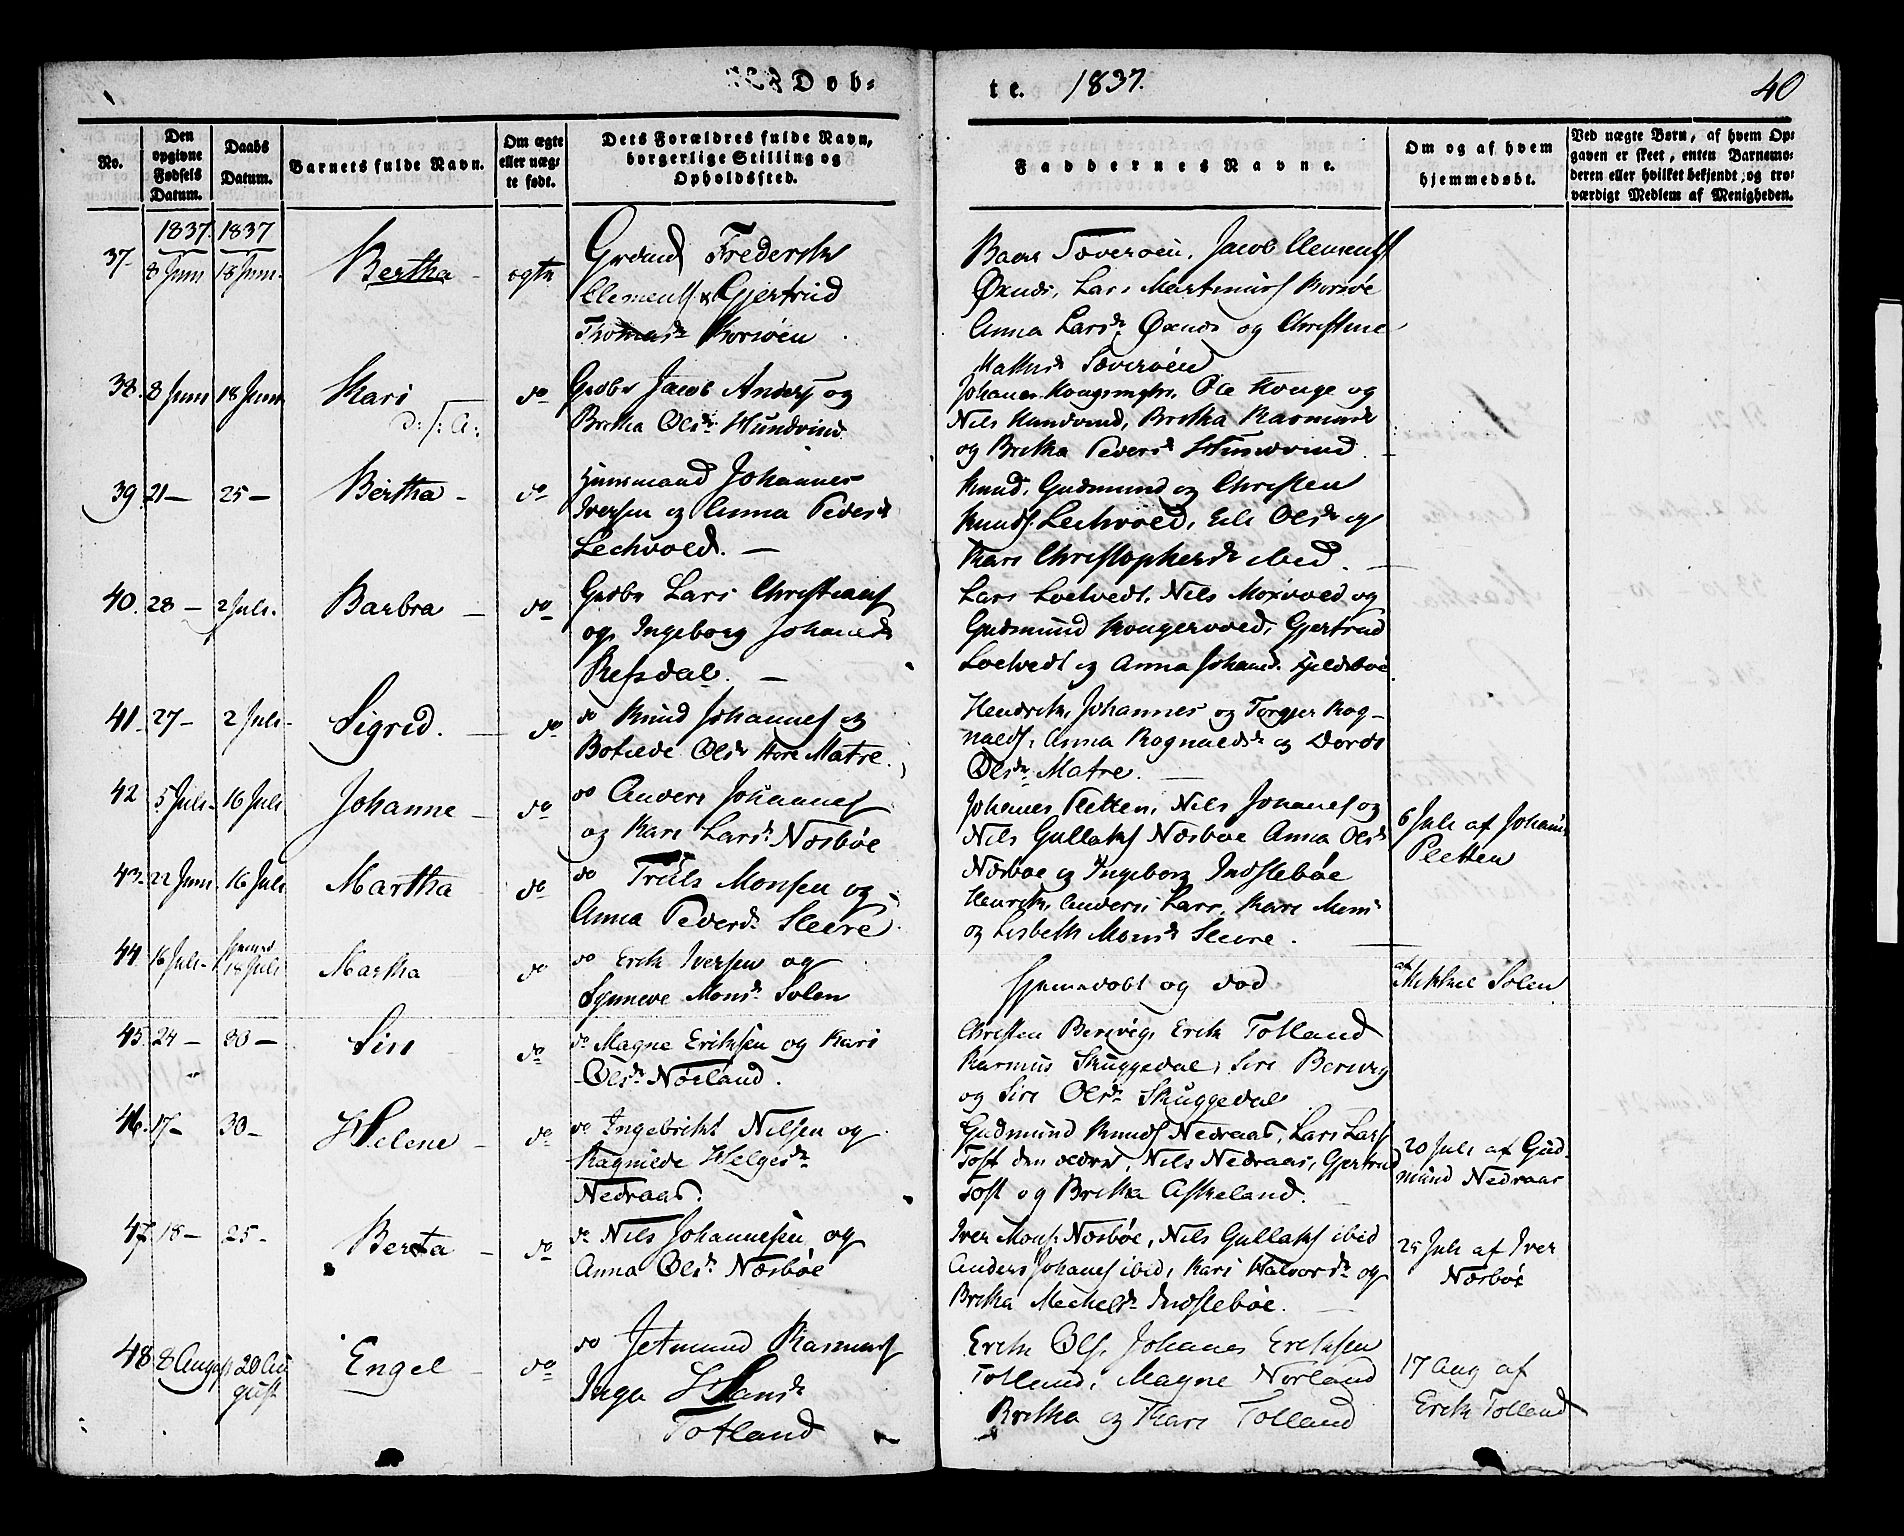 Døb-
te. 1837.
40
No.
Den opgivne Fødsels Datum.
Daabs Datum.
Barnets fulde Navn.
Om ægte eller uægte født.
Dets Forældres fulde Navn, borgerlige Stilling og Opholdssted.
Faddernes Navne.
Om og af hvem hjemmedøbt.
Ved uægte Børn, af hvem Opgaven er skeet, enten Barnemoderen eller hvilket bekjendt, og troværdigt Medlem af Menigheden.
1837. 1837
37. 8 Juni 18 Juni Bertha ægte
Frederik
Clements & Gjertrud
Thomasdr Korsøen
Sæverøen, Jacob Clements
Øxnæs, Lars Martinus Korsøe
Anna Larsdr Øxnæs og Christine
Sæverøen
38. 8 Juni 18 Juni Kari do
Grdbr Jacob Anders og
Britha Olsdr Hundvind
Ole Konge og
Nils Hundvind, Britha Rasmusdr
og Britha Pedersdr Hundvind
39. 21 - 25 - Bertha - do
Huusmand Johannes
Iversen og Anna Pedersdr
Lechvold. -
Knud, Gudmund og Christen
Knuds Lechvold, Eli Olsdr og
Kari Christophersdr ibid.
40. 28 - 2 Juli. Barbra - do
Grdbr Lars Christians
og Ingeborg Johansdr
Refsdal. -
Lars Loelvedt, Nils Moxvold og
Gudmund Kongervold, Gjertrud
Loelvedt og Anna Johansd. Fjeldsbøe
41. 27 - 2 Juli - Sigrid. - do
do Knud Johannes og
Botilde Olsdr Matre.
Hendrik, Johannes og Torger Rog-
nalds, Anna Rognaldsdr og Dordi
Olsdr Matre. -
42 5 Juli - 16 Juli Johanne - do
do Anders Johannes
og Kari Larsdr Næsbøe
Johannes Pletten, Nils Johanes og
Nils Gullaks Næsbøe Anna Olsdr
Næsbøe og Ingeborg Indslebøe
6 Juli af Johannes
Pletten
43. 22 Juni 16 Juli Martha do
do Truls Monsen og
Anna Pedersdr Sleire.
Henrik, Anders, Lars, Kari Mons
og Lisbeth Monsdr Sleire.
44 16 Juli - 18 Juli Martha do
do Erik Iversen og
Synneve Monsdr Solen
Hjemmedøbt og død
af Mikkel Solen
45. 24 - 30 - Siri do
do Magne Eriksen og Kari
Olsdr Nørland.
Christen Bervig, Erik Totland
Rasmus Skuggedal, Siri Bervig
og Siri Olsdr Skuggedal
46. 17 - 30 - Helene - do
do Ingebrikt Nilsen og
Ragnilde Helgesdr
Nedraas.
Gudmund Knuds Nedraas, Lars Lars
Toft den ældre, Nils Nedraas, Gjertrud
Toft og Britha Askeland.
20 Juli af Gud-
mund Nedraas
47. 18 - 25 - Berta - do
do Nils Johannesen og
Anna Olsdr Næsbøe
Iver Mons Næsbøe, Nils Gullaks ibid
Anders Johanes ibid, Kari Halvorsdr og
Britha Mechelsdr Indslebøe.
25 Juli af Iver
Næsbøe
48 8 August 20 Au
gust Engel - do
do Jetmund Rasmus
Inga Hansdr
Totland
Erik Ols, Johanes Eriksen
Totland, Magne Norland
Britha og Kari Totland
17 Aug af
Erik Totland